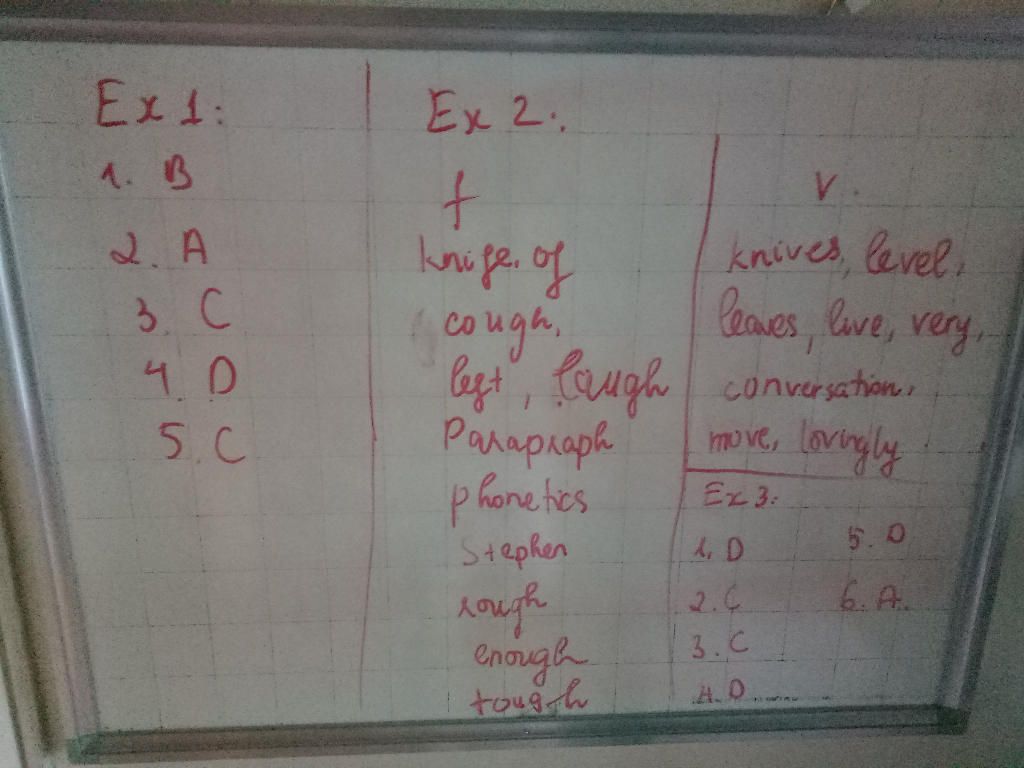 Ex 1:
1. B
2. A
3. C
4. D
5. C
Ex 2:
f
knife, of
cough,
left, laugh
Paragraph
phonetics
Stephen
rough
enough
tough
v.
knives, level,
leaves, live, very,
conversation,
move, lovingly
Ex 3:
1. D
2. C
3. C
4. D
5. D
6. A.